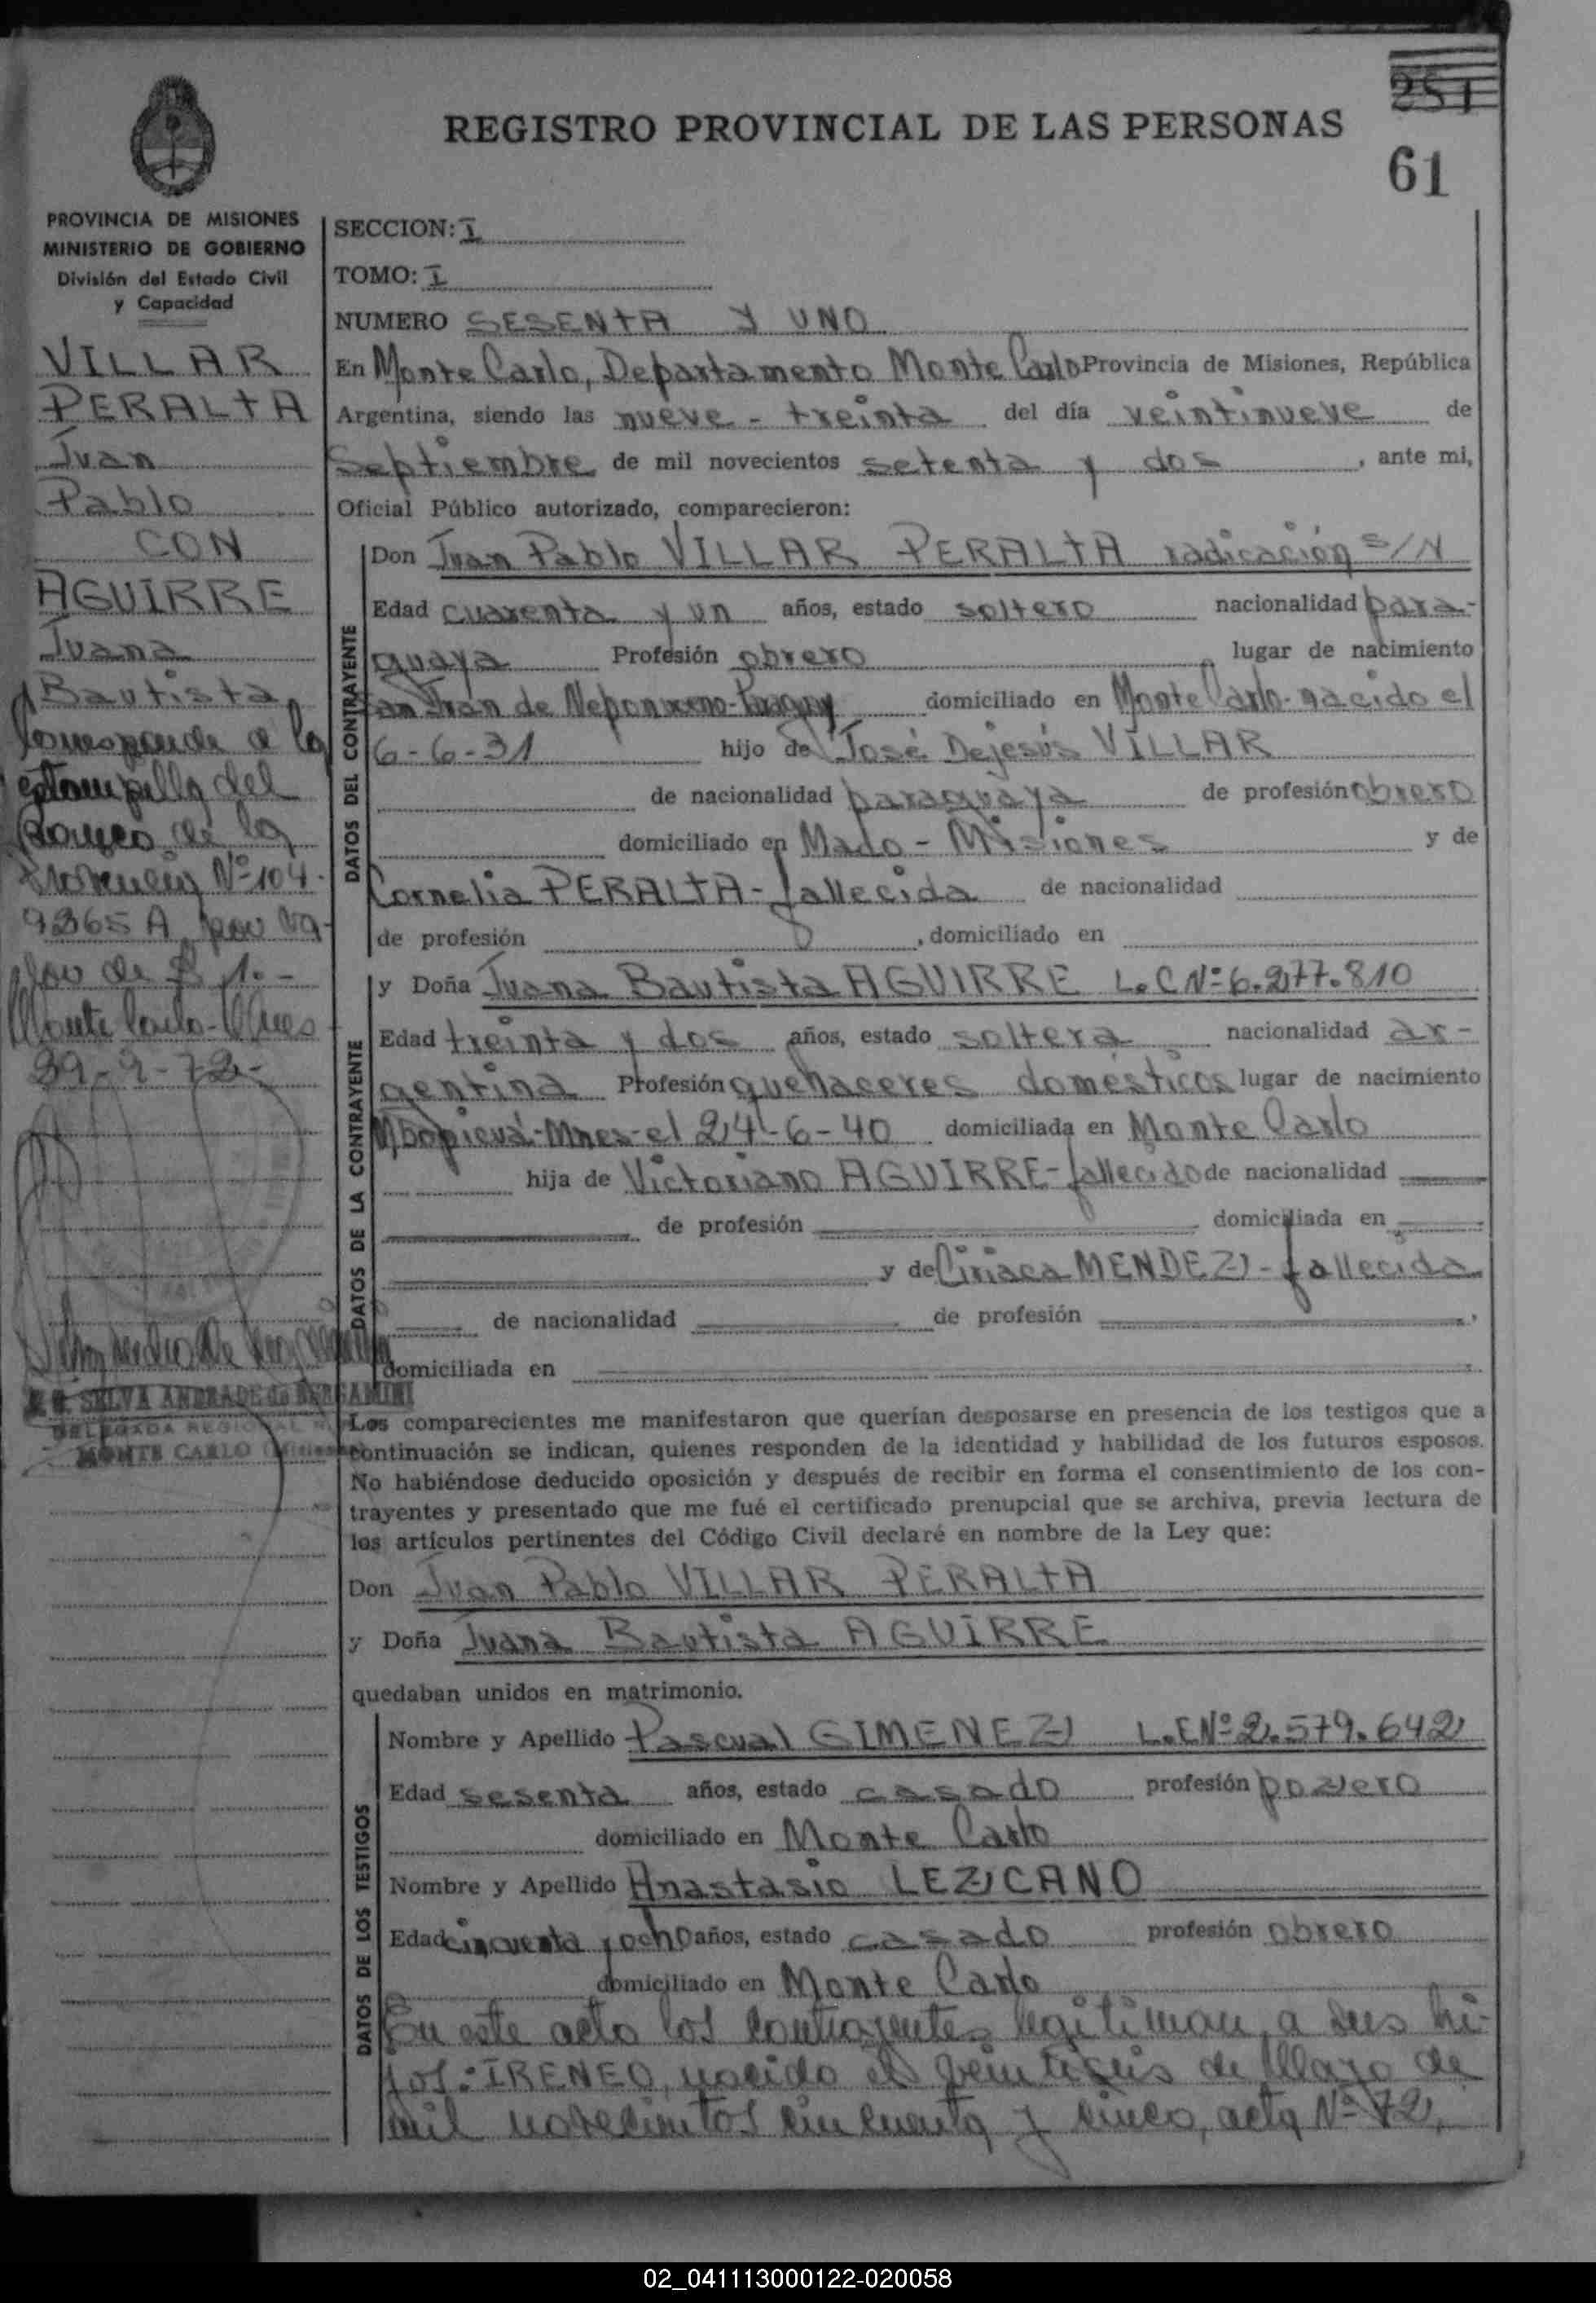 251
REGISTRO PROVINCIAL DE LAS PERSONAS
61
PROVINCIA DE MISIONES
MINISTERIO DE GOBIERNO
División del Estado Civil
y Capacidad
VILLAR
PERALTA
Juan
Pablo
CON
AGUIRRE
Juana
Bautista
Corresponde a la
estampilla del
Banco de la
Provincia Nº 104.
9365 A por va-
lor de $ 1.-
Monte Carlo-Mnes
29-9-72-
SELVA ANDRADE de BERGAMINI
DELEGADA REGIONAL
MONTE CARLO
SECCION: I
TOMO: I
NUMERO SESENTA Y UNO
En Monte Carlo, Departamento Monte Carlo Provincia de Misiones, República
Argentina, siendo las nueve - treinta del día veintinueve de
Septiembre de mil novecientos setenta y dos, ante mi,
Oficial Público autorizado, comparecieron:
DATOS DEL CONTRAYENTE
Don Juan Pablo VILLAR PERALTA radicación s/N
Edad cuarenta y un años, estado soltero nacionalidad para-
guaya Profesión obrero lugar de nacimiento
San Juan de Nepomuceno-Paraguay domiciliado en Monte Carlo-nacido el
6-6-31 hijo de José Dejesús VILLAR
de nacionalidad paraguaya de profesión obrero
domiciliado en Mado - Misiones y de
Cornelia PERALTA - fallecida de nacionalidad
de profesión , domiciliado en
DATOS DE LA CONTRAYENTE
y Doña Juana Bautista AGUIRRE L.C Nº 6.277.810
Edad treinta y dos años, estado soltera nacionalidad ar-
gentina Profesión quehaceres domésticos lugar de nacimiento
Mbopicuá-Mnes-el 24-6-40 domiciliada en Monte Carlo
hija de Victoriano AGUIRRE-fallecido de nacionalidad
de profesión domiciliada en
y de Ciriaca MENDEZ - fallecida
de nacionalidad de profesión
domiciliada en
Los comparecientes me manifestaron que querían desposarse en presencia de los testigos que a
continuación se indican, quienes responden de la identidad y habilidad de los futuros esposos.
No habiéndose deducido oposición y después de recibir en forma el consentimiento de los con-
trayentes y presentado que me fué el certificado prenupcial que se archiva, previa lectura de
los artículos pertinentes del Código Civil declaré en nombre de la Ley que:
Don Juan Pablo VILLAR PERALTA
y Doña Juana Bautista AGUIRRE
quedaban unidos en matrimonio.
DATOS DE LOS TESTIGOS
Nombre y Apellido Pascual GIMENEZ L.E Nº 2.579.642
Edad sesenta años, estado casado profesión pozero
domiciliado en Monte Carlo
Nombre y Apellido Anastasio LEZCANO
Edad cincuenta y ocho años, estado casado profesión obrero
domiciliado en Monte Carlo
En este acto los contrayentes legitiman a sus hi-
jos: IRENEO, nacido el veintiseis de Mayo de
mil novecientos cincuenta y cinco, acta Nº 72,
02_041113000122-020058